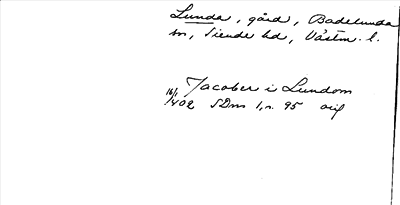 Lunda, gård, Badelunda
sn, Siende hd, Västm. l.
Jacober i Lundom
16/1 1402 SDns 1, n. 95 orig